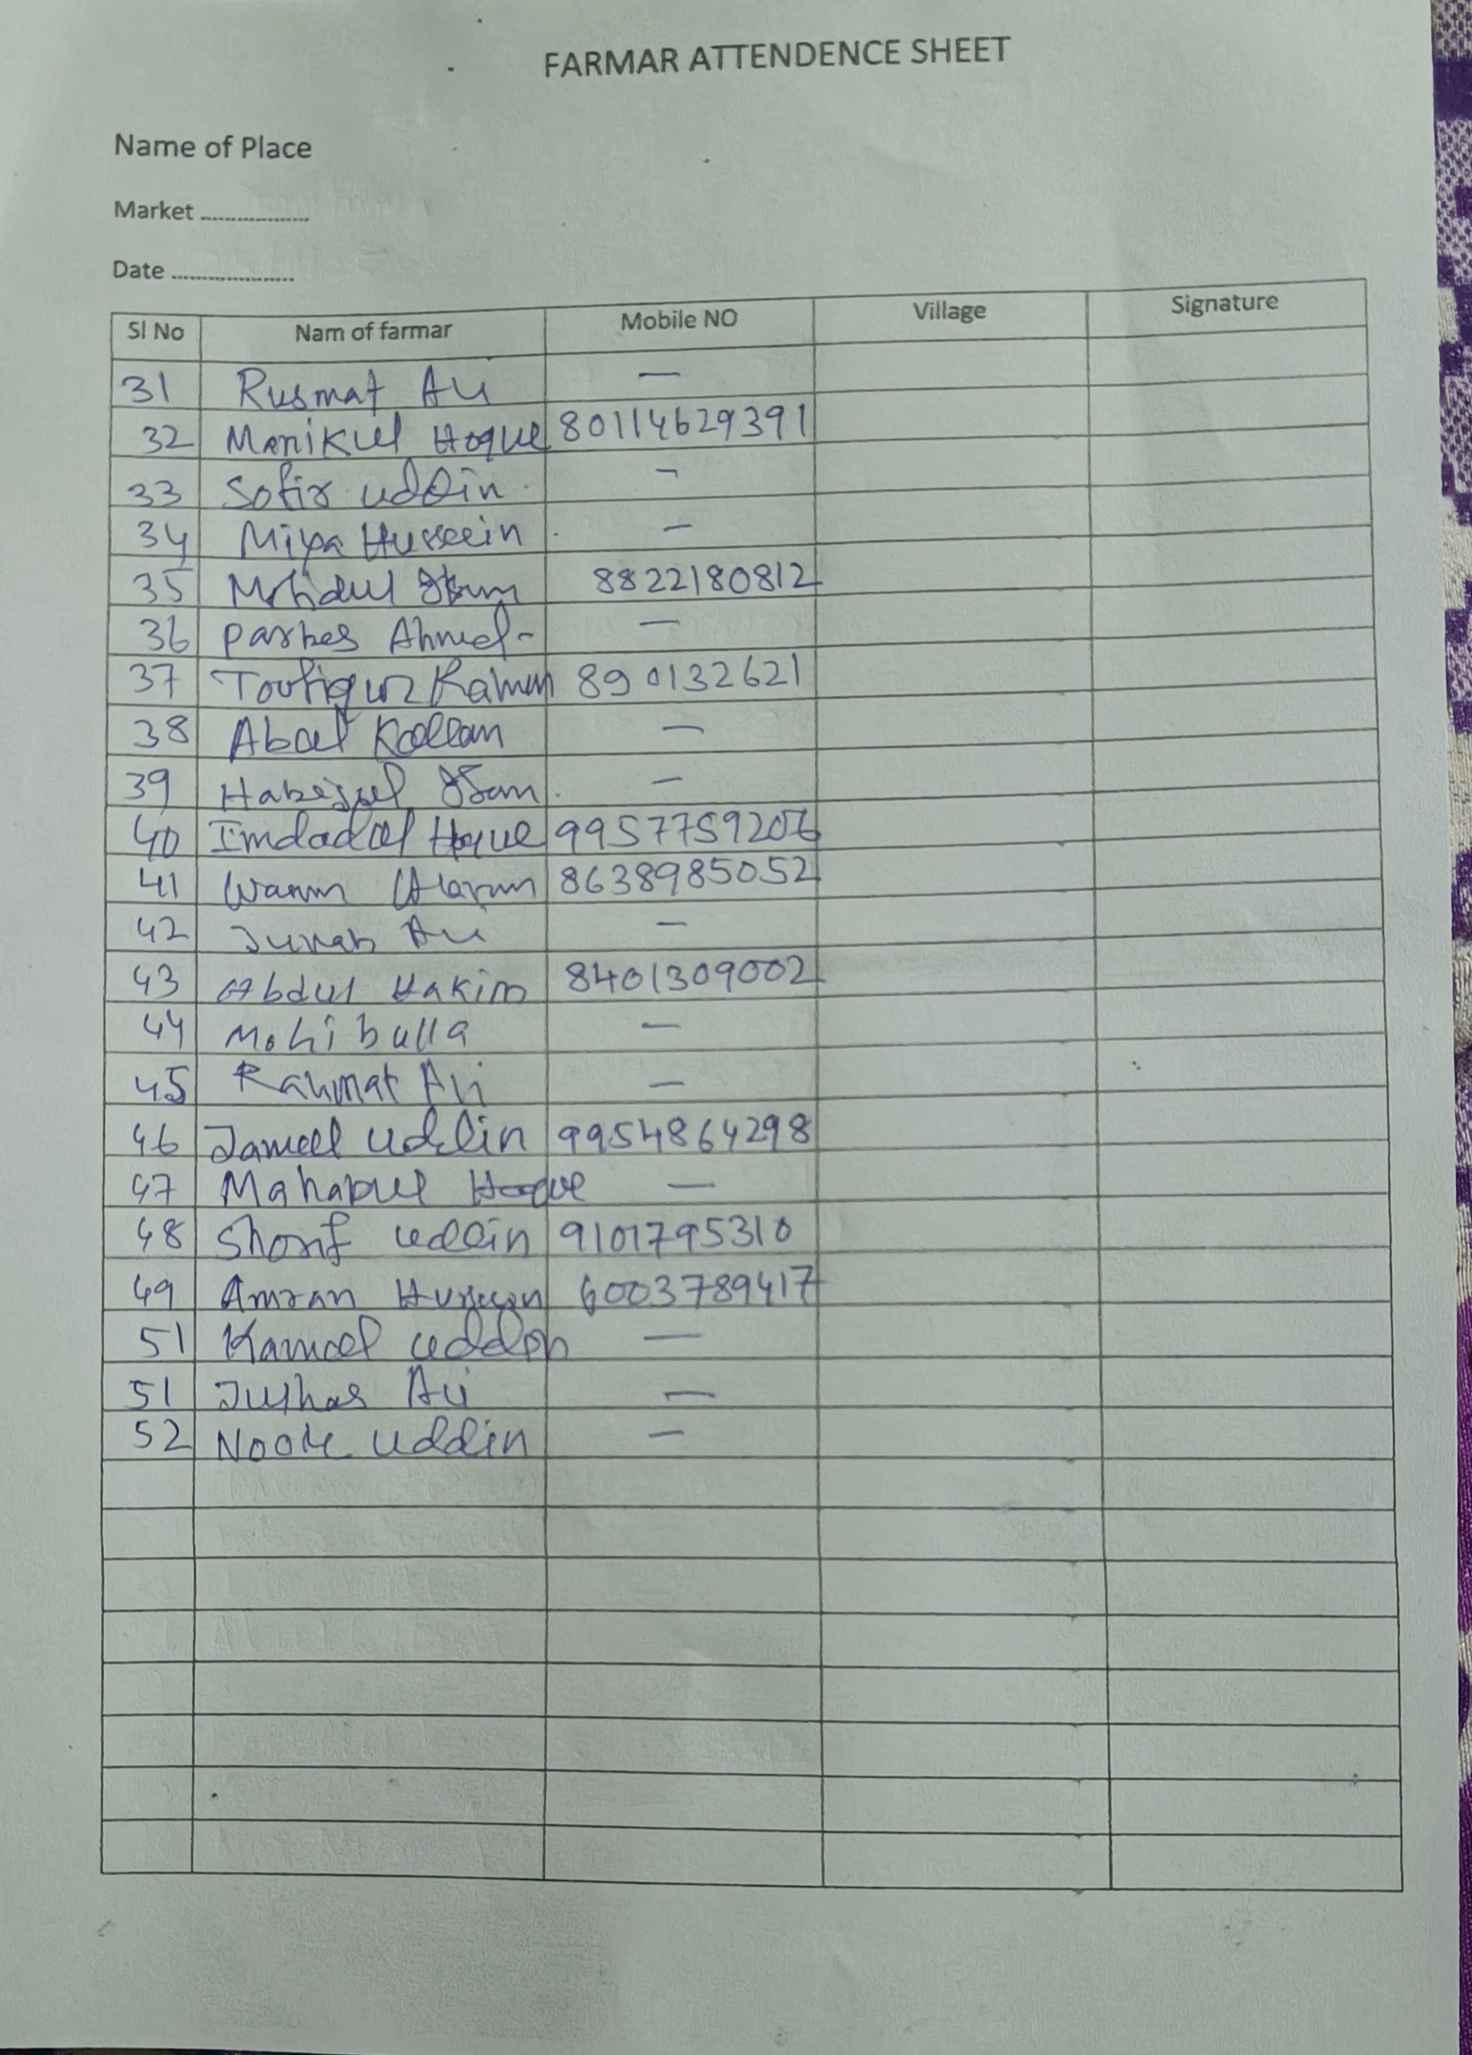 FARMAR ATTENDENCE SHEET
Name of Place
Market ................
Date ...................
Sl No Nam of farmar Mobile NO Village Signature
31 Rusmat Ali —
32 Manikul Hoque 80114629391
33 Sofir uddin —
34 Miya Hussein —
35 8822180812
36 Parbes Ahmed —
37 Toufiqur Rahman 890132621
38 Abul Kallam —
39 —
40 Imdadul Hoque 9957759206
41 8638985052
42 Ali —
43 Abdul Hakim 8401309002
44 Mohibulla —
45 Rahmat Ali —
46 Jameel uddin 9954864298
47 Mahabul Hoque —
48 Shorif uddin 9101795310
49 Amran Hussain 6003789417
51 Kamaal uddin —
51 Ali —
52 uddin —